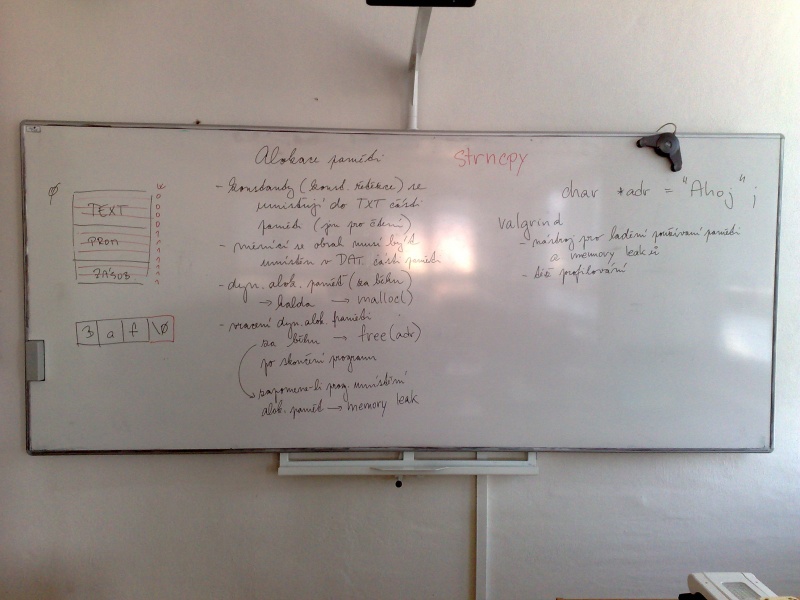 Ø
TEXT
PROM
ZÁSOB
3 a f \0
Alokace paměti
- konstanty (konst. řetězce) se
umisťují do TXT části
paměti (jen pro čtení)
- měnící se obsah musí být
umístěn v DAT. části paměti
- dyn. alok. paměť (za běhu)
→ halda → malloc()
- vracení dyn. alok. paměti
za běhu → free(adr)
po skončení programu
zapomene-li prog. umístění
alok. paměť → memory leak
strncpy
char *adr = "Ahoj";
valgrind
- nástroj pro ladění používání paměti
a memory leaků
- též profilování